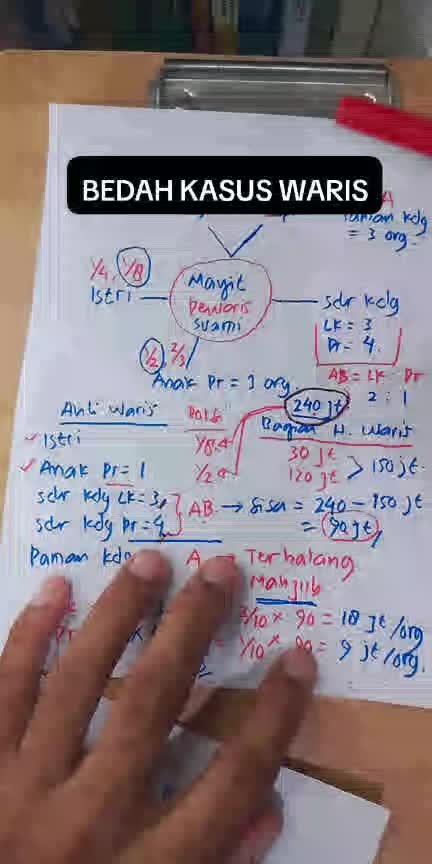 BEDAH KASUS WARIS
A
Paman kdg
= 3 org.
1/4, 1/8
Istri
Mayit
Pewaris
Suami
sdr kdg
LK = 3
Pr = 4
1/2, 2/3
Anak Pr = 1 org.
AB = LK : Pr
2 : 1
240 jt
Ahli Waris
Bagian A. Waris
Istri
1/8
30 jt
Anak Pr = 1
1/2
120 jt > 150 jt
sdr kdg LK = 3
sdr kdg Pr = 4
AB → Sisa = 240 - 150 jt
= 90 jt
Paman kdg
A → Terhalang
Mahjub
/10 x 90 = 18 jt/org
= 1/10 x 90 = 9 jt/org.